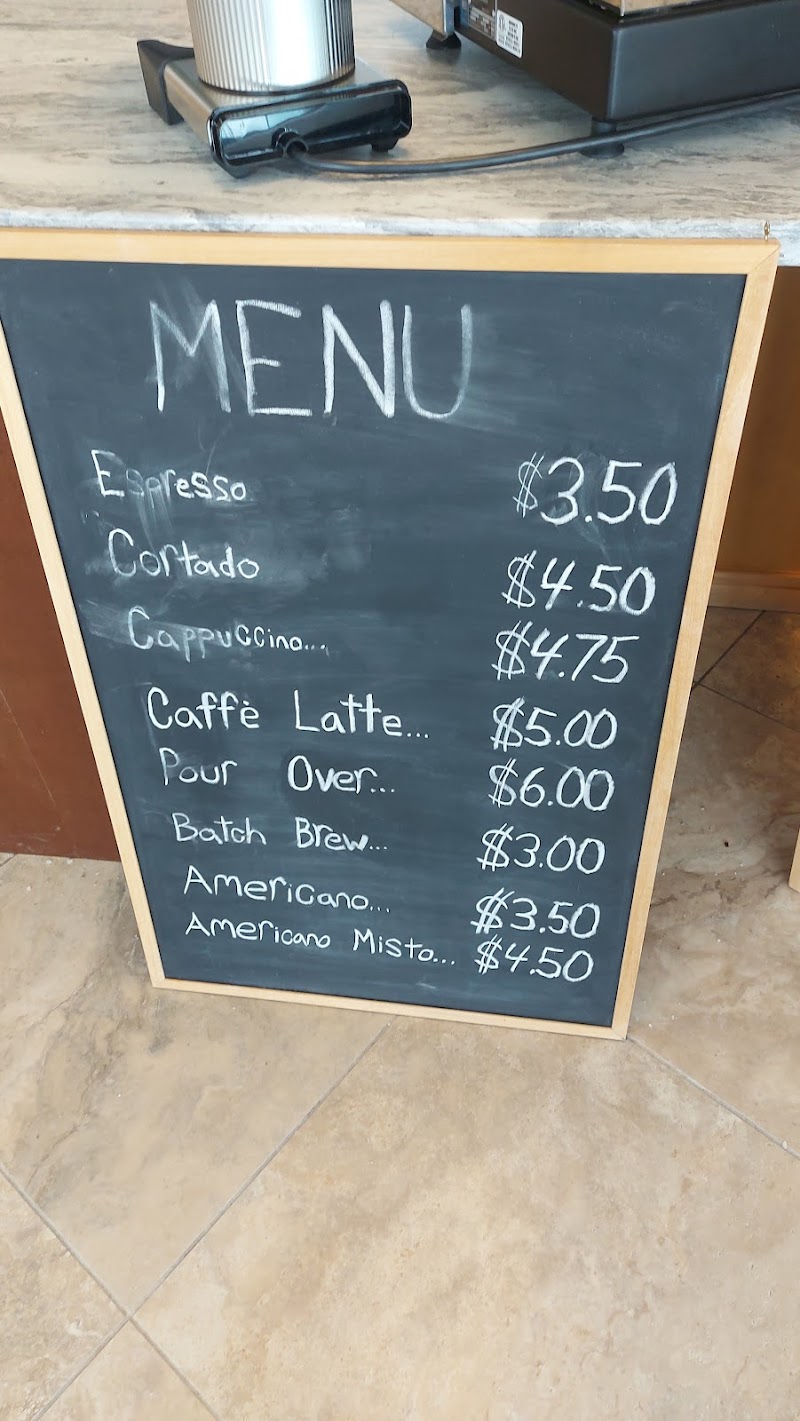 MENU
Espresso $3.50
Cortado $4.50
Cappuccino... $4.75
Caffè Latte... $5.00
Pour Over... $6.00
Batch Brew... $3.00
Americano... $3.50
Americano Misto... $4.50